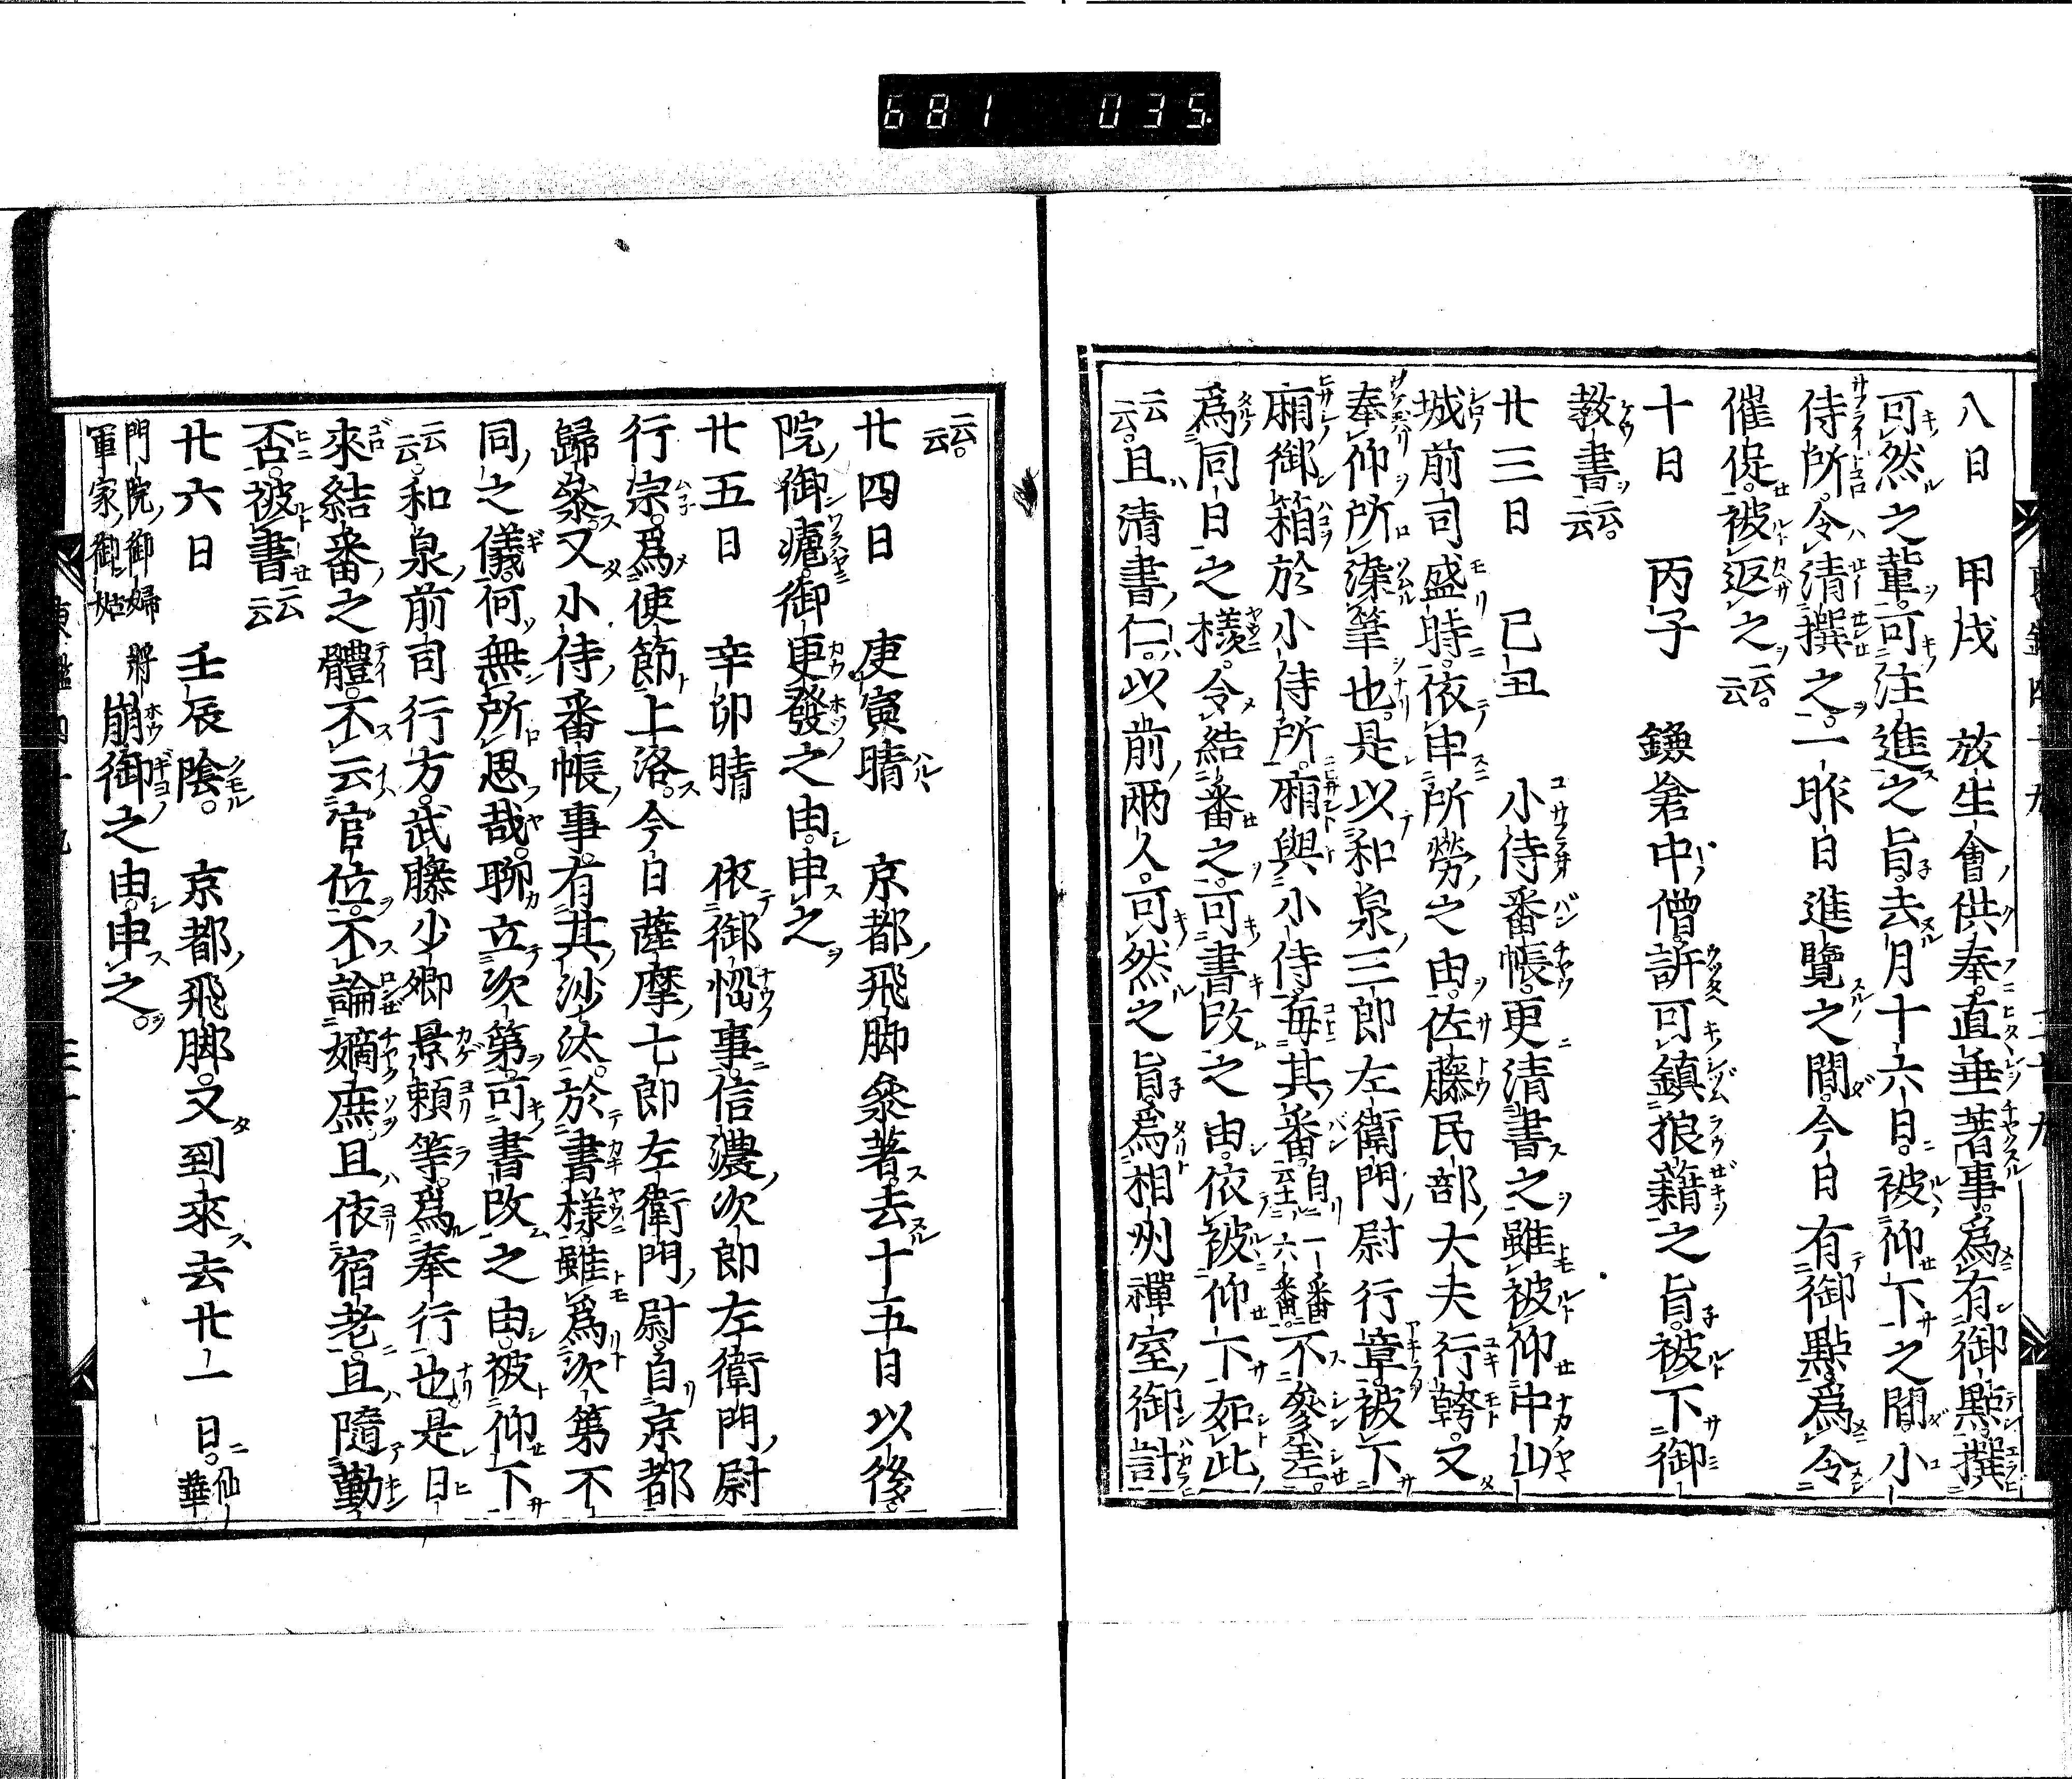 681 035
八日 甲戌 放生會供奉直垂著事爲有御點撰
可然之輩可注進之旨去月十六日被仰下之間小
侍所令清撰之一昨日進覽之間今日有御點爲令
催促被返之云云
十日 丙子 鎌倉中僧訴可鎮狼藉之旨被下御
教書云云
廿三日 已丑 小侍番帳更清書之雖被仰中山
城前司盛時依申所勞之由佐藤民部大夫行幹又
奉仰所染筆也是以和泉三郎左衛門尉行章被下
廂御箱於小侍所廂與小侍每其番自一番至六番云云不參差
爲同日之樣令結番之可書改之由依被仰下如此
云云且清書仁以前兩人可然之旨爲相州禪室御計
云云
廿四日 庚寅晴 京都飛脚參著去十五日以後
院御瘧御更發之由申之
廿五日 辛卯晴 依御惱事信濃次郎左衛門尉
行宗爲使節上洛今日薩摩七郎左衛門尉自京都
歸參又小侍番帳事有其沙汰於書樣雖爲次第不
同之儀何無所思哉聊立次第可書改之由被仰下
云云和泉前司行方武藤少卿景頼等爲奉行也是日
來結番之體不云官位不論嫡庶且依宿老且隨勤
否被書云云
廿六日 壬辰陰 京都飛脚又到來去廿一日仙華
門院御婦將軍家御姑崩御之由申之